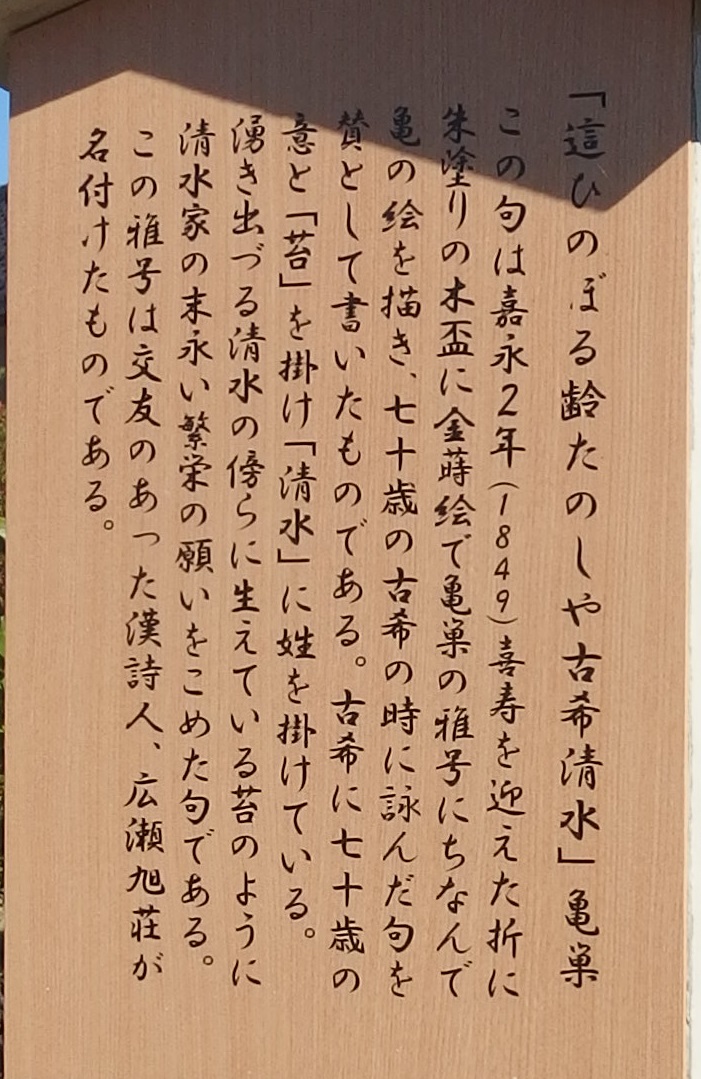 「這ひのぼる齢たのしや古希清水」亀巣
この句は嘉永2年(1849)喜寿を迎えた折に
朱塗りの木盃に金蒔絵で亀巣の雅号にちなんで
亀の絵を描き、七十歳の古希の時に詠んだ句を
賛として書いたものである。古希に七十歳の
意と「苔」を掛け「清水」に姓を掛けている。
湧き出づる清水の傍らに生えている苔のように
清水家の末永い繁栄の願いをこめた句である。
この雅号は交友のあった漢詩人、広瀬旭荘が
名付けたものである。